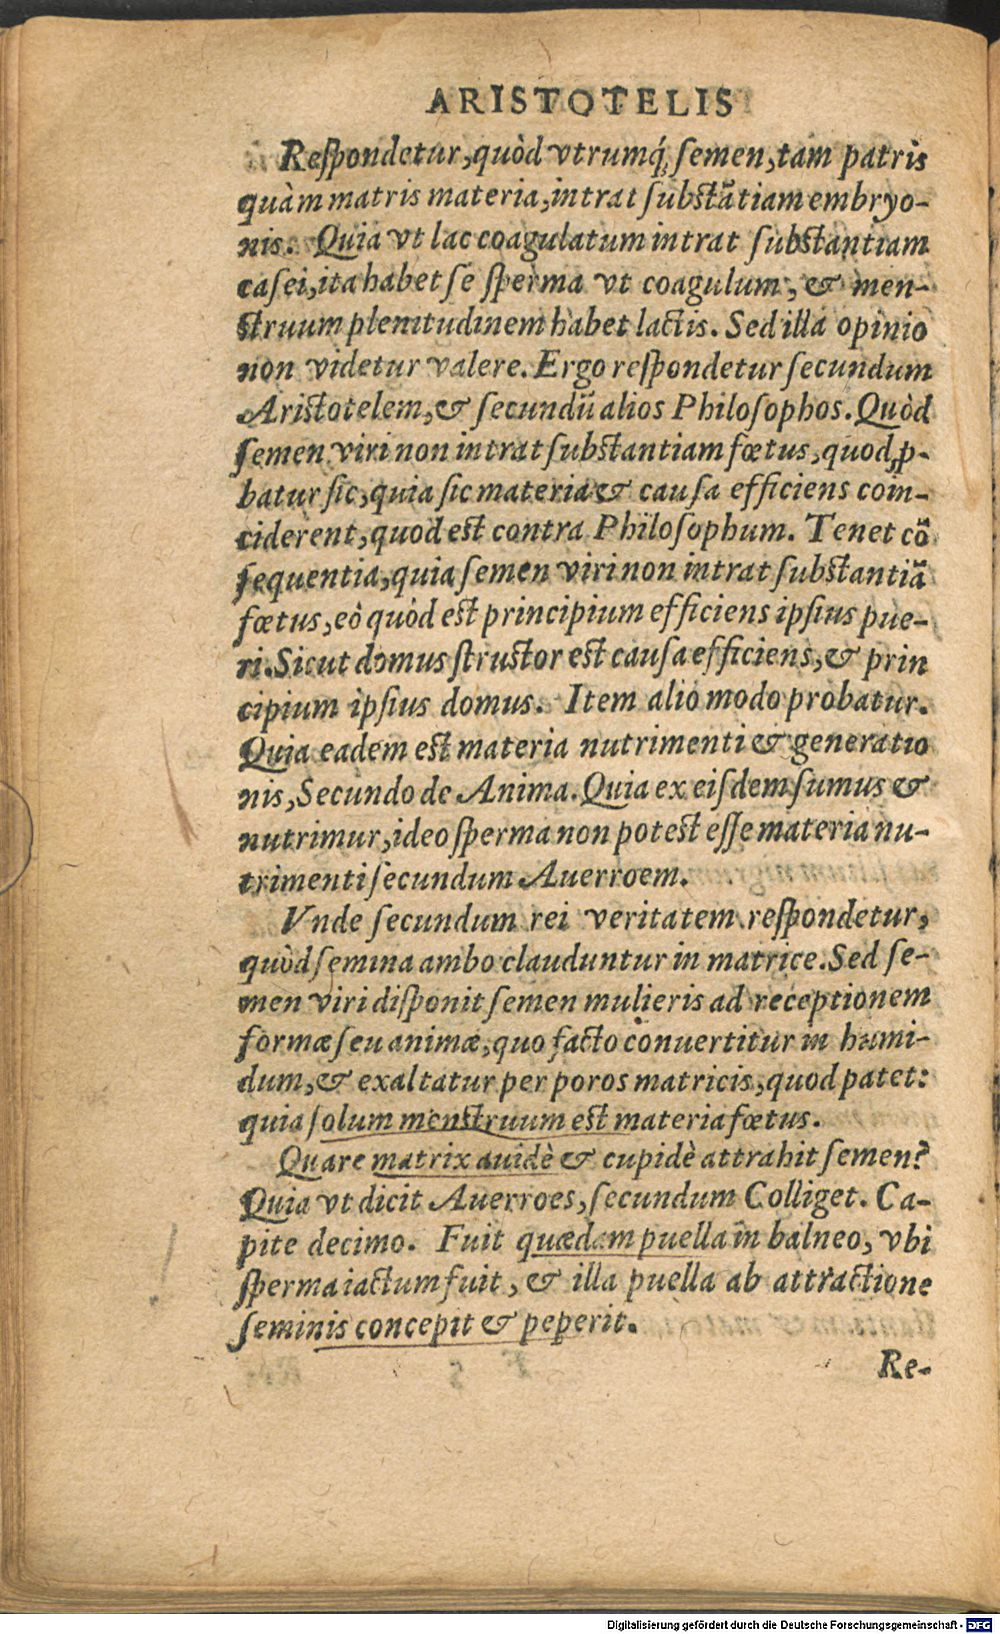 ARISTOTELIS
Reſpondetur, quòd vtrumq́; ſemen, tam patris
quàm matris materia, intrat ſubſtãtiam embryo-
nis. Quia vt lac coagulatum intrat ſubſtantiam
caſei, ita habet ſe ſperma vt coagulum, & men-
ſtruum plenitudinem habet lactis. Sed illa opinio
non videtur valere. Ergo reſpondetur ſecundum
Ariſtotelem, & ſecundũ alios Philoſophos. Quòd
ſemen viri non intrat ſubſtantiam fœtus, quod ꝓ-
batur ſic, quia ſic materia & cauſa efficiens coin-
ciderent, quod eſt contra Philoſophum. Tenet cõ
ſequentia, quia ſemen viri non intrat ſubſtantiã
fœtus, eò quòd eſt principium efficiens ipſius pue-
ri. Sicut domus ſtructor eſt cauſa efficiens, & prin
cipium ipſius domus. Item alio modo probatur.
Quia eadem eſt materia nutrimenti & generatio
nis, Secundo de Anima. Quia ex eiſdem ſumus &
nutrimur, ideo ſperma non poteſt eſſe materia nu-
trimenti ſecundum Auerroem.
Vnde ſecundum rei veritatem reſpondetur,
quòd ſemina ambo clauduntur in matrice. Sed ſe-
men viri diſponit ſemen mulieris ad receptionem
formæ ſeu animæ, quo facto conuertitur in humi-
dum, & exaltatur per poros matricis, quod patet:
quia ſolum menſtruum eſt materia fœtus.
Quare matrix auidè & cupidè attrahit ſemen?
Quia vt dicit Auerroes, ſecundum Colliget. Ca-
pite decimo. Fuit quædam puella in balneo, vbi
ſperma iactum fuit, & illa puella ab attractione
ſeminis concepit & peperit.
Re-
Digitalisierung gefördert durch die Deutsche Forschungsgemeinschaft - DFG